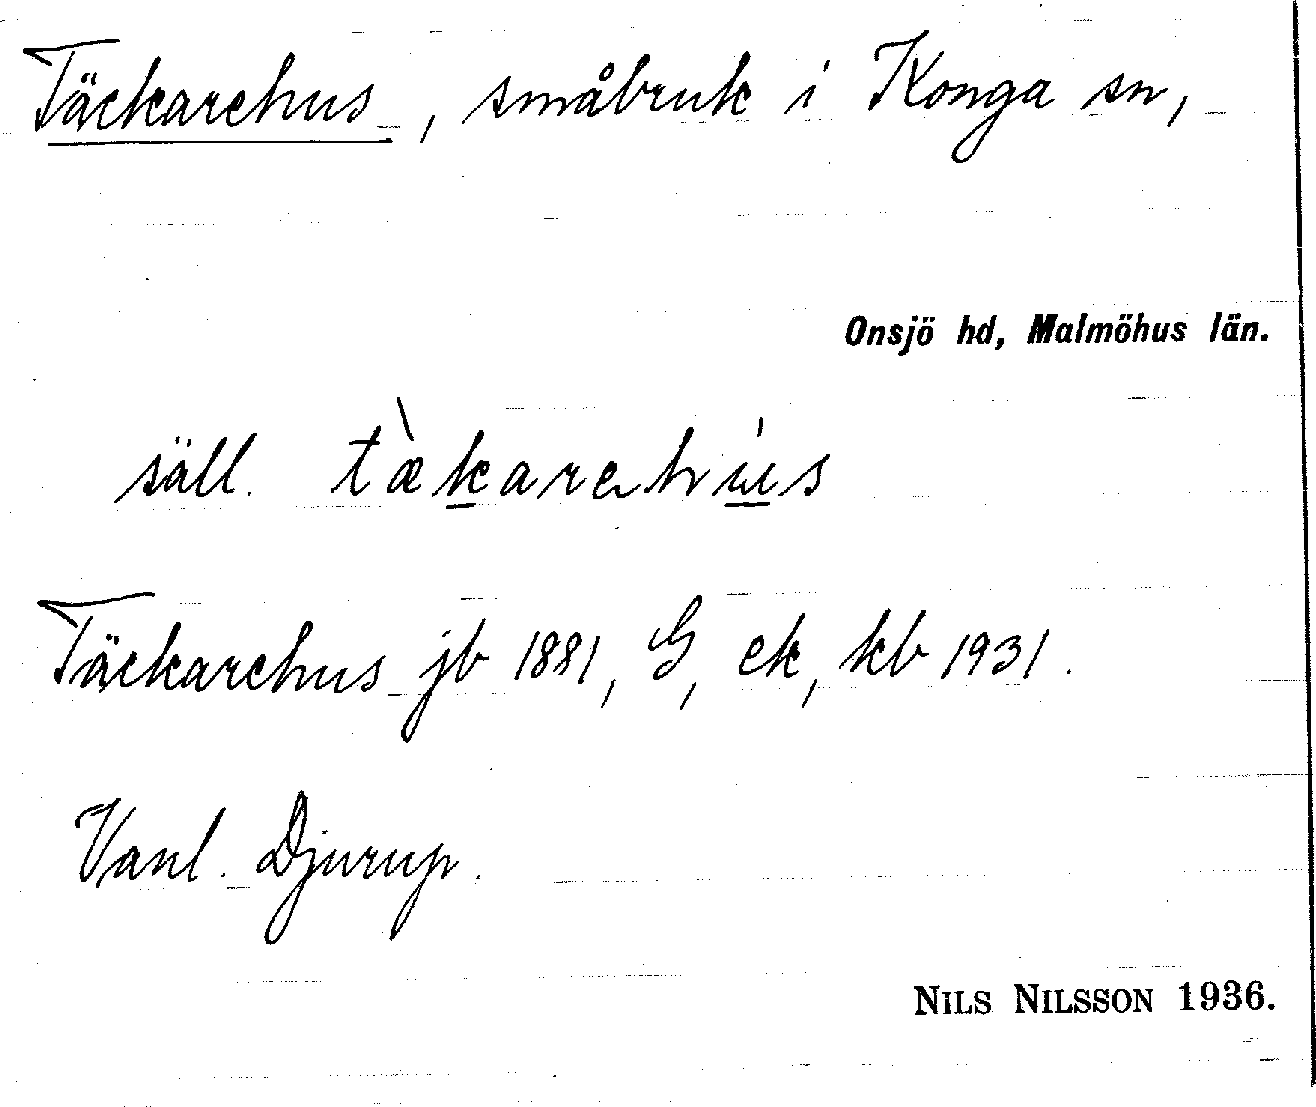 Täckarehus, småbruk i Konga sn,
Onsjö hd, Malmöhus län.
säll. tæ̀karehús
Täckarehus jb 1881, G, ek, kb 1931.
Vanl. Djurup.
NILS NILSSON 1936.